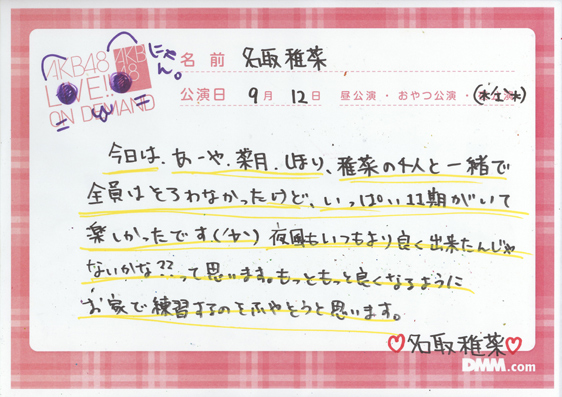 AKB48 AKB48
LOVE!!
ON DEMAND
にゃん。
名前 名取稚菜
公演日 9月 12日 昼公演・おやつ公演・
今日は、あーや、葉月、しほり、稚菜の4人と一緒で
全員はそろわなかったけど、いっぱい11期がいて
楽しかったです 夜風もいつもより良く出来たんじゃ
ないかな??って思います。もっともっと良くなるように
お家で練習するのをふやそうと思います。
♡名取稚菜♡
DMM.com